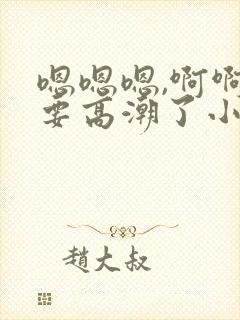 嗯嗯嗯,啊啊
要高潮了小
趙大叔